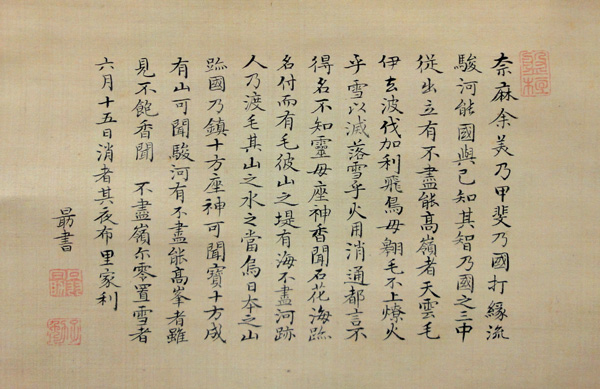 奈麻余美乃甲斐乃國打縁流
駿河能國與己知其智乃國之三中
従出立有不盡能高嶺者天雲毛
伊去波伐加利飛鳥毋翔毛不上燎火
乎雪以滅落雪乎火用消通都言不
得名不知靈毋座神香聞石花海跡
名付而有毛彼山之堤有海不盡河跡
人乃渡毛其山之水之當烏日本之山
跡國乃鎮十方座神可聞寶十方成
有山可聞駿河有不盡能高峯者雖
見不飽香聞 不盡嶺尓零置雪者
六月十五日消者其夜布里家利
最書